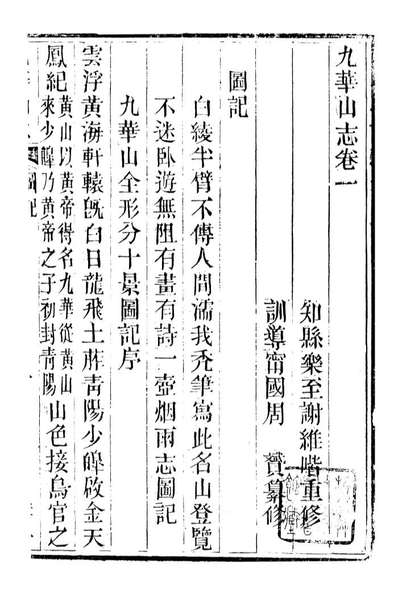 九華山志卷一
知縣樂至謝維喈重修
訓導甯國周　贇纂修
圖記
白綾半臂不傳人間濡我禿筆寫此名山登覽
不迷卧遊無阻有畫有詩一壺烟雨志圖記
九華山全形分十景圖記序
雲浮黃海軒轅旣白日龍飛土靑陽少皞啟金天
鳳紀
黃山以黃帝得名九華從黃山
來少皞乃黃帝之子初封靑陽
山色接鳥官之